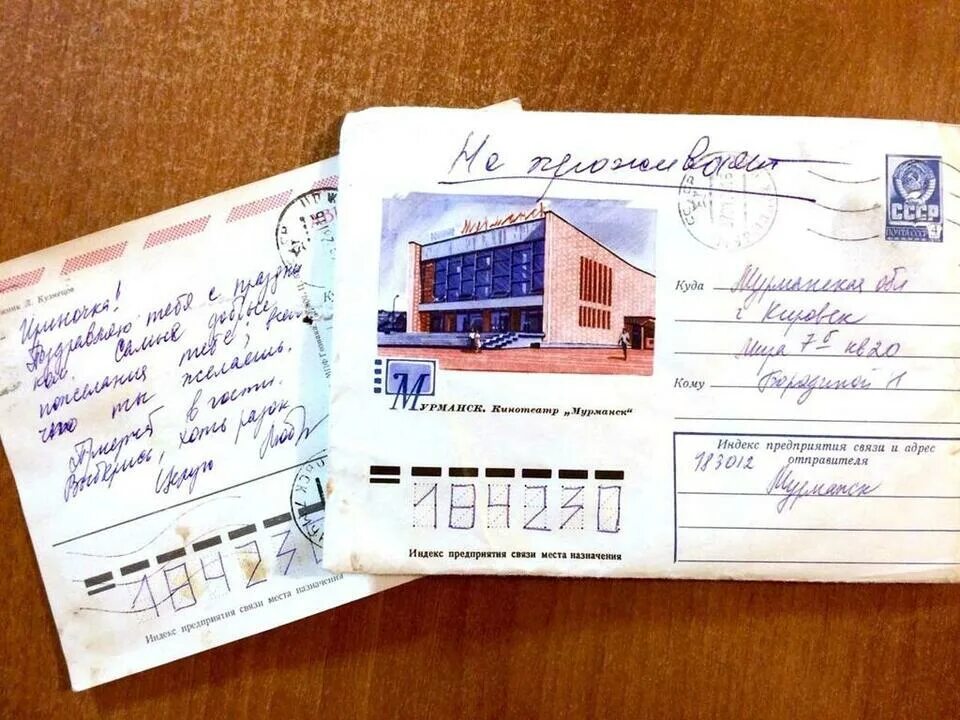 Не проживает
Мурманск
СССР
ПОЧТА СССР
4
Куда Мурманская обл
г Кировск
7б кв 20
Кому Бородиной Н
Мурманск. Кинотеатр „Мурманск“
Индекс предприятия связи и адрес
отправителя
183012
Мурманск
184230
Индекс предприятия связи места назначения
Л. Кузнецов
Ириночка!
Поздравляю тебя с праздни
ком. Самые добрые
пожелания тебе, всего
чего ты желаешь.
в гости.
Выберись, хоть разок
Целую Люба
18423
Индекс предприятия связи места назначения